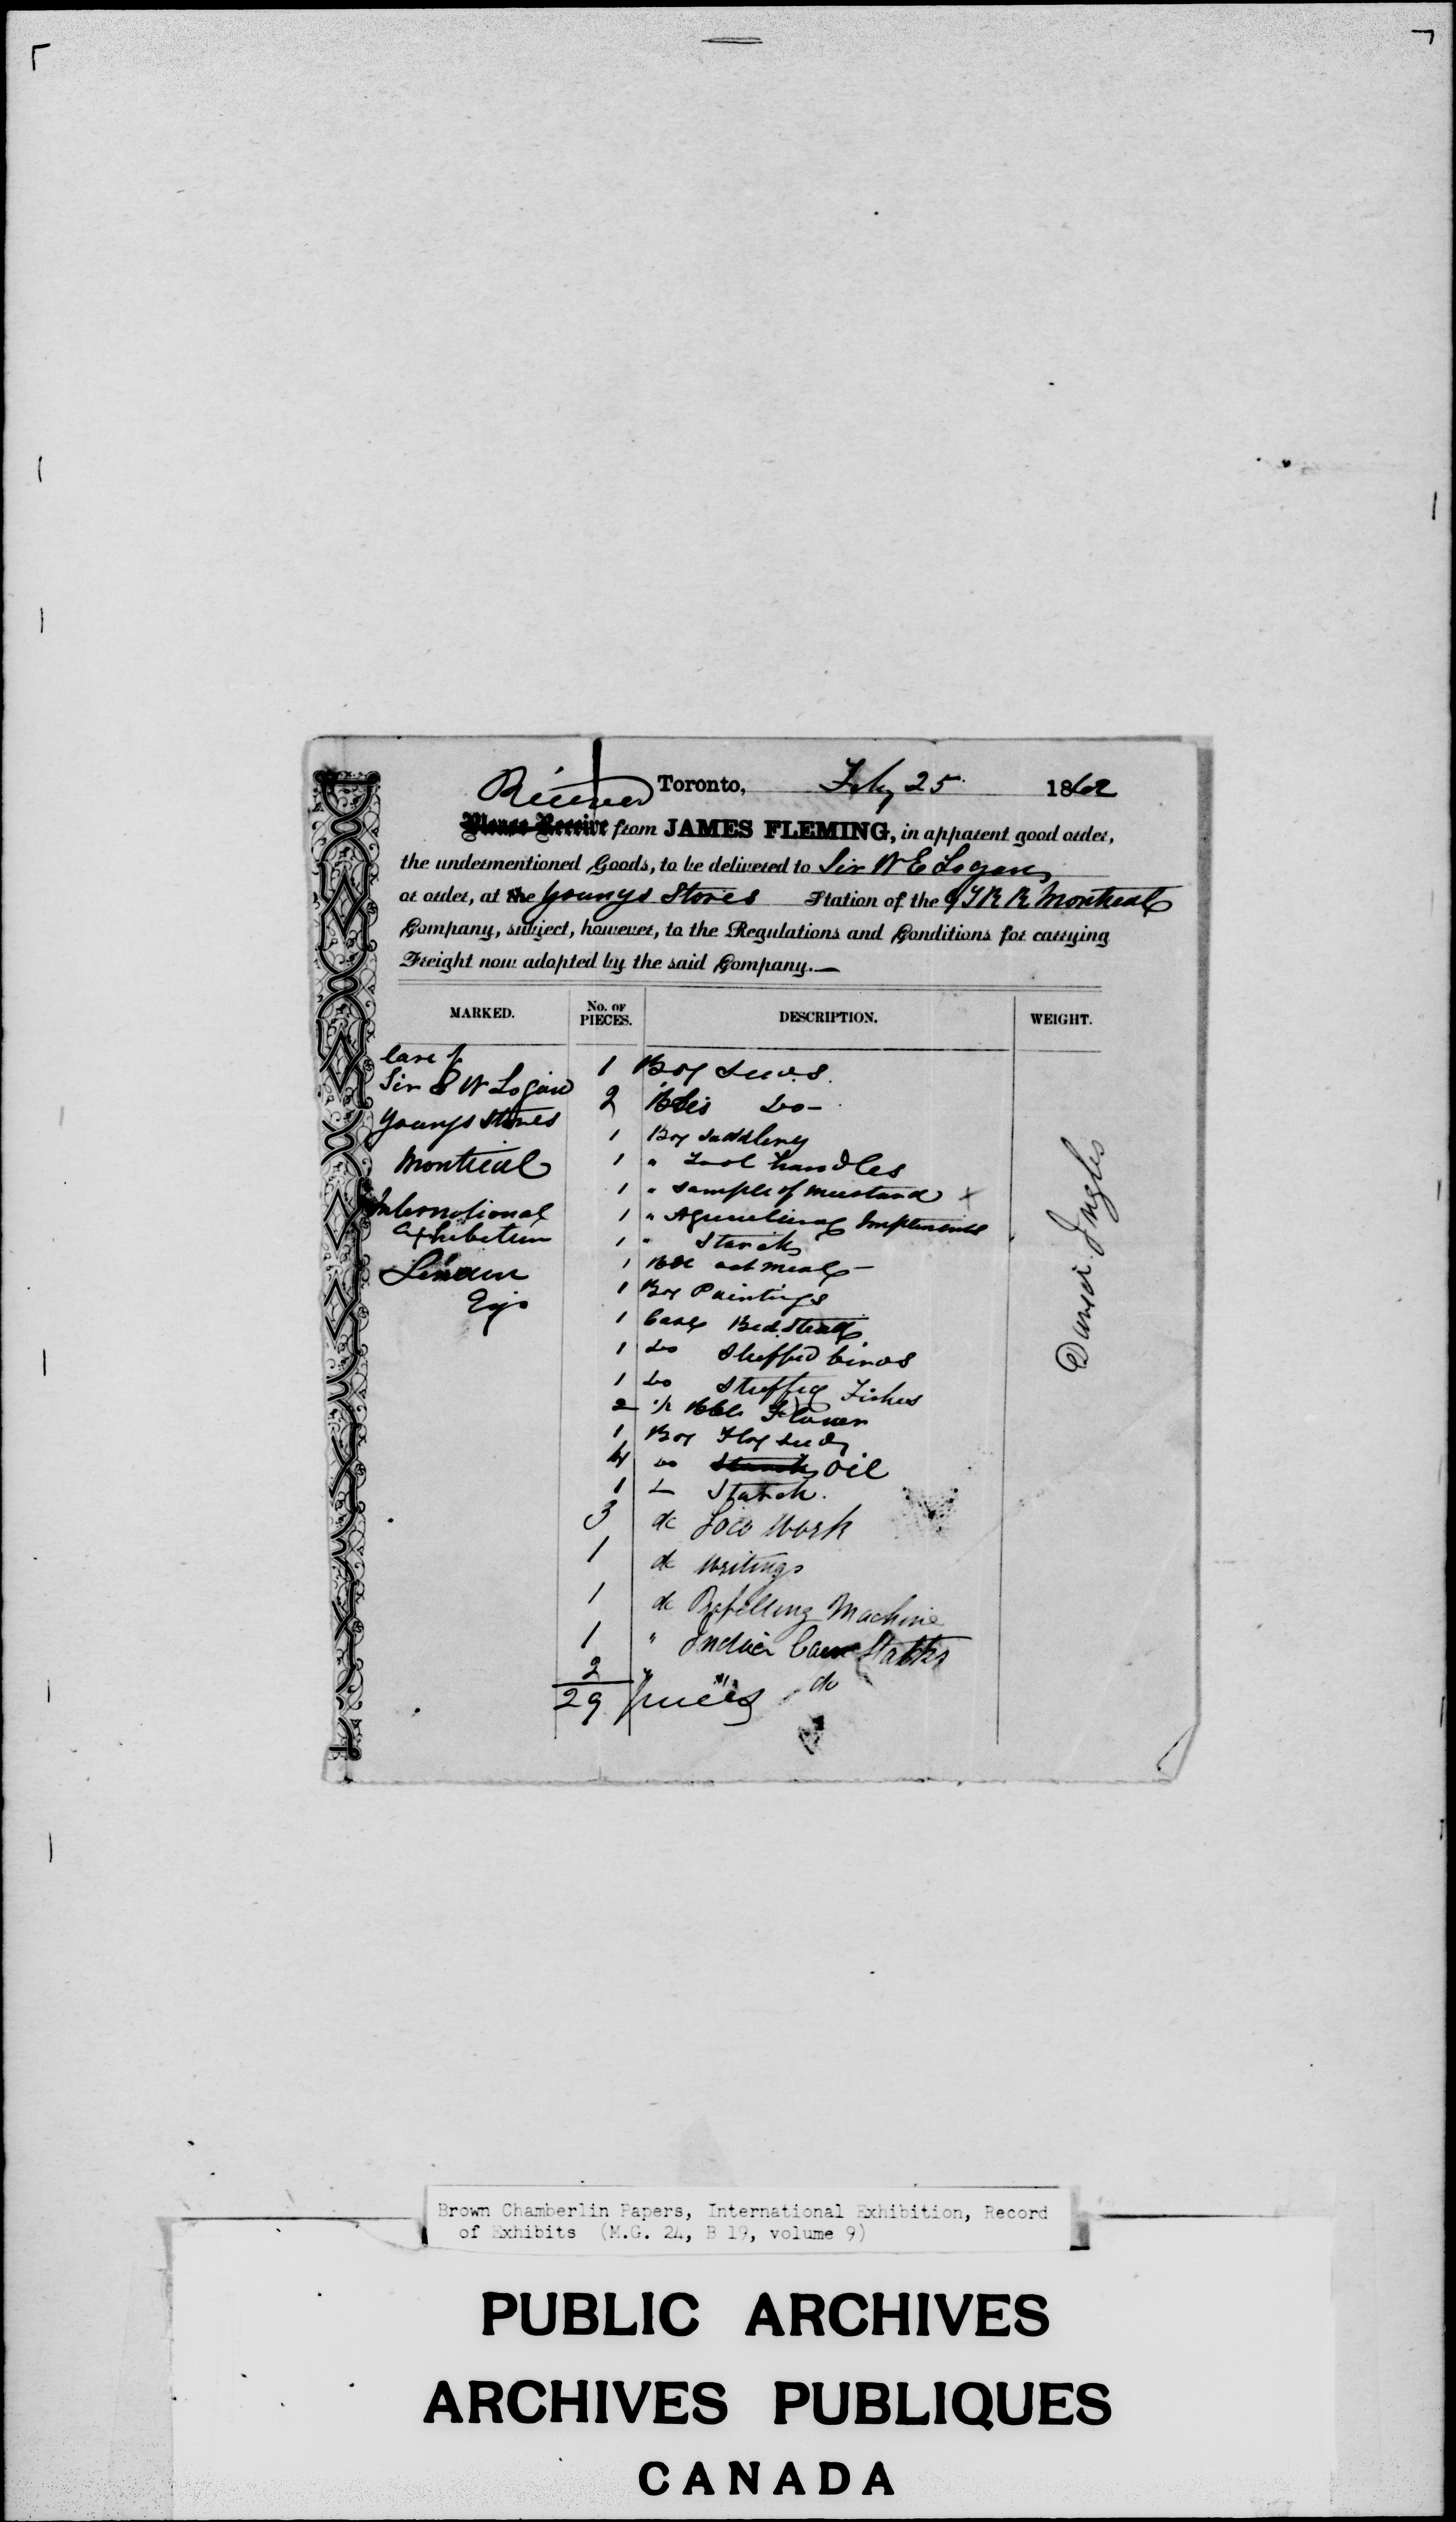 Toronto, Feby 25 1862
Received
Please Receive from JAMES FLEMING, in apparent good order,
the undermentioned Goods, to be delivered to Sir W E Logan
or order, at the Youngs Stores Station of the G T R R Montreal
Company, subject, however, to the Regulations and Conditions for carrying
Freight now adopted by the said Company.—
MARKED. No. OF PIECES. DESCRIPTION. WEIGHT.
Care of
Sir W Logan
Youngs Stores
Montreal
International
Exhibition
London
1 Box Seeds
2 Bbls Do -
1 Box Saddlery
1 " Tool handles
1 " Sample of Mustard x
1 " Agricultural Implements
1 " Starch
1 Bbl oat meal -
1 Box Paintings
1 Case Bedstead
1 Do Stuffed birds
1 Do Stuffed Fishes
2 1/2 Bbls Flour
1 Box Flax Seed
4 Do Starch oil
1 Starch.
3 do Work
1 do Writings
1 do Machine
1 " Indian Corn Stalks
2 " " do
29 pieces
Brown Chamberlin Papers, International Exhibition, Record
of Exhibits (M.G. 24, B 19, volume 9)
PUBLIC ARCHIVES
ARCHIVES PUBLIQUES
CANADA